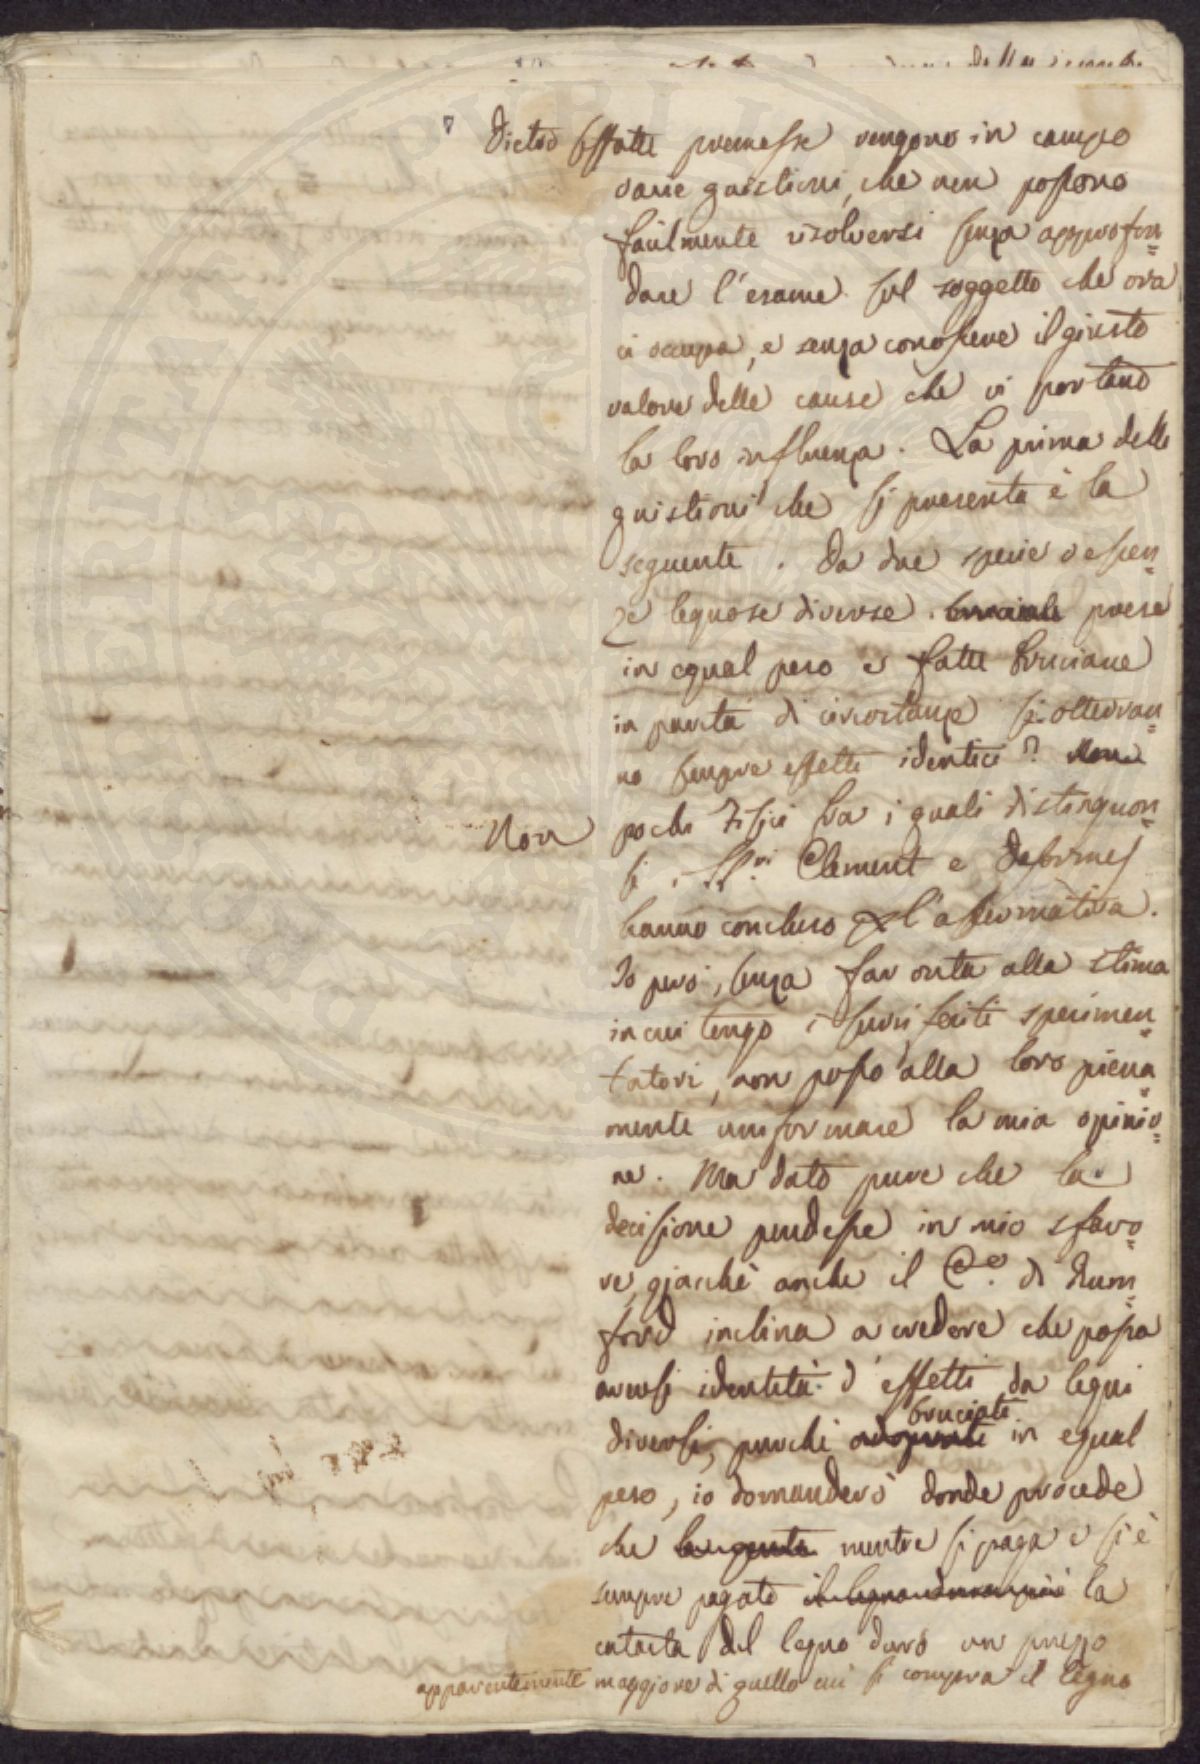 Dietro sffatte premesse vengono in campo
varie quistioni, che non possono
facilmente risolversi senza approfon=
dare l'esame sul soggetto che ora
ci occupa, e senza conoscere il giusto
valore delle cause che vi portano
la loro influenza. La prima delle
quistioni che si presenta è la
seguente. Da due specie d'essen=
ze legnose diverse bruciate prese
in egual peso e fatte bruciare
in parità di circostanze si otterran=
no sempre effetti identici? Non
Non pochi Fisici fra i quali distinguon=
si i SS.ri Clement e Desormes
hanno concluso per l'affermativa.
Io però, senza far onta alla stima
in cui tengo i surriferiti sperimen=
tatori, non posso alla loro piena=
mente uniformare la mia opinio=
ne. Ma dato pure che la
decisione pendesse in mio sfavo=
re, giacchè anche il C.e di Rum=
ford inclina a credere che possa
aversi identità d'effetti da legni
bruciati
diversi, purchè adoprati in egual
peso, io domanderò donde procede
che la gente mentre si paga e si è
sempre pagato il legno duro più la
catasta del legno duro un prezzo
apparentemente maggiore di quello cui si compra il legno